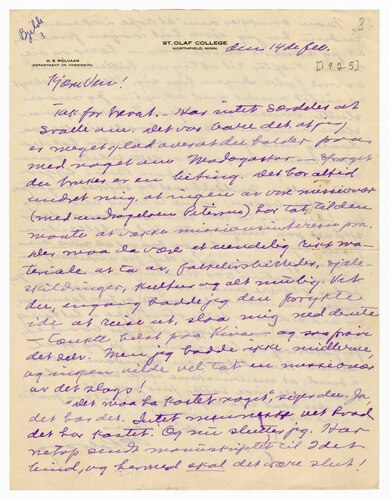 Bjelde
3
3
ST. OLAF COLLEGE
NORTHFIELD, MINN.
O. E. RÖLVAAG
DEPARTMENT OF NORWEGIAN
den 14de feb.
[1925]
Kjære Ven!
Tak for brevet. – Har intet særdeles at
svare om. Det var bare det, at jeg
er meget glad over at du holder paa
med noget om Madagaskar –
du bruker er en biting. Det har altid
undret mig, at ingen av vore missionærer
(med undtagelse av ) har tat til den
maate at vække missionsinteresse paa.
Der maa da være et uendelig rikt ma-
teriale at ta av, folkelivsbilleder, sjæle-
skildringer, kultur og alt mulig. Vet
du, engang hadde jeg den forrykte
ide at reise ut, slaa mig ned derute
– tænkte helst paa Kina – og saa prøve
det selv. Men jeg hadde ikke midlerne,
og ingen vilde vel tat en missionær
av det slags!
"Det maa ha kostet noget", siger du. Ja,
det har det. Intet menneske vet hvad
det har kostet. Og nu slutter jeg. Har
netop sendt manuskriptet til 2det
bind, og hermed skal det være slut!